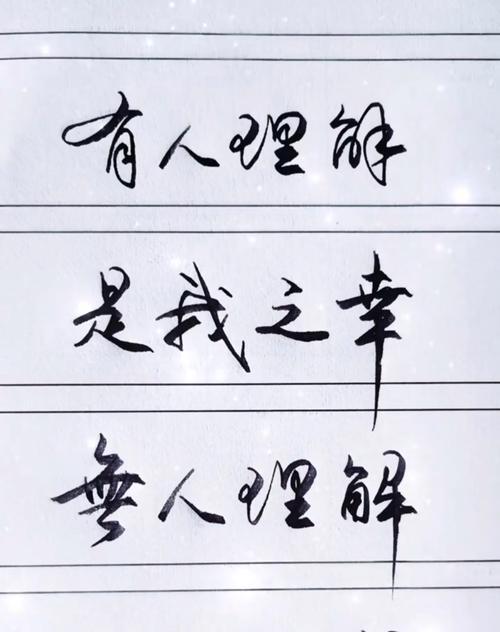 有人理解
是我之幸
無人理解